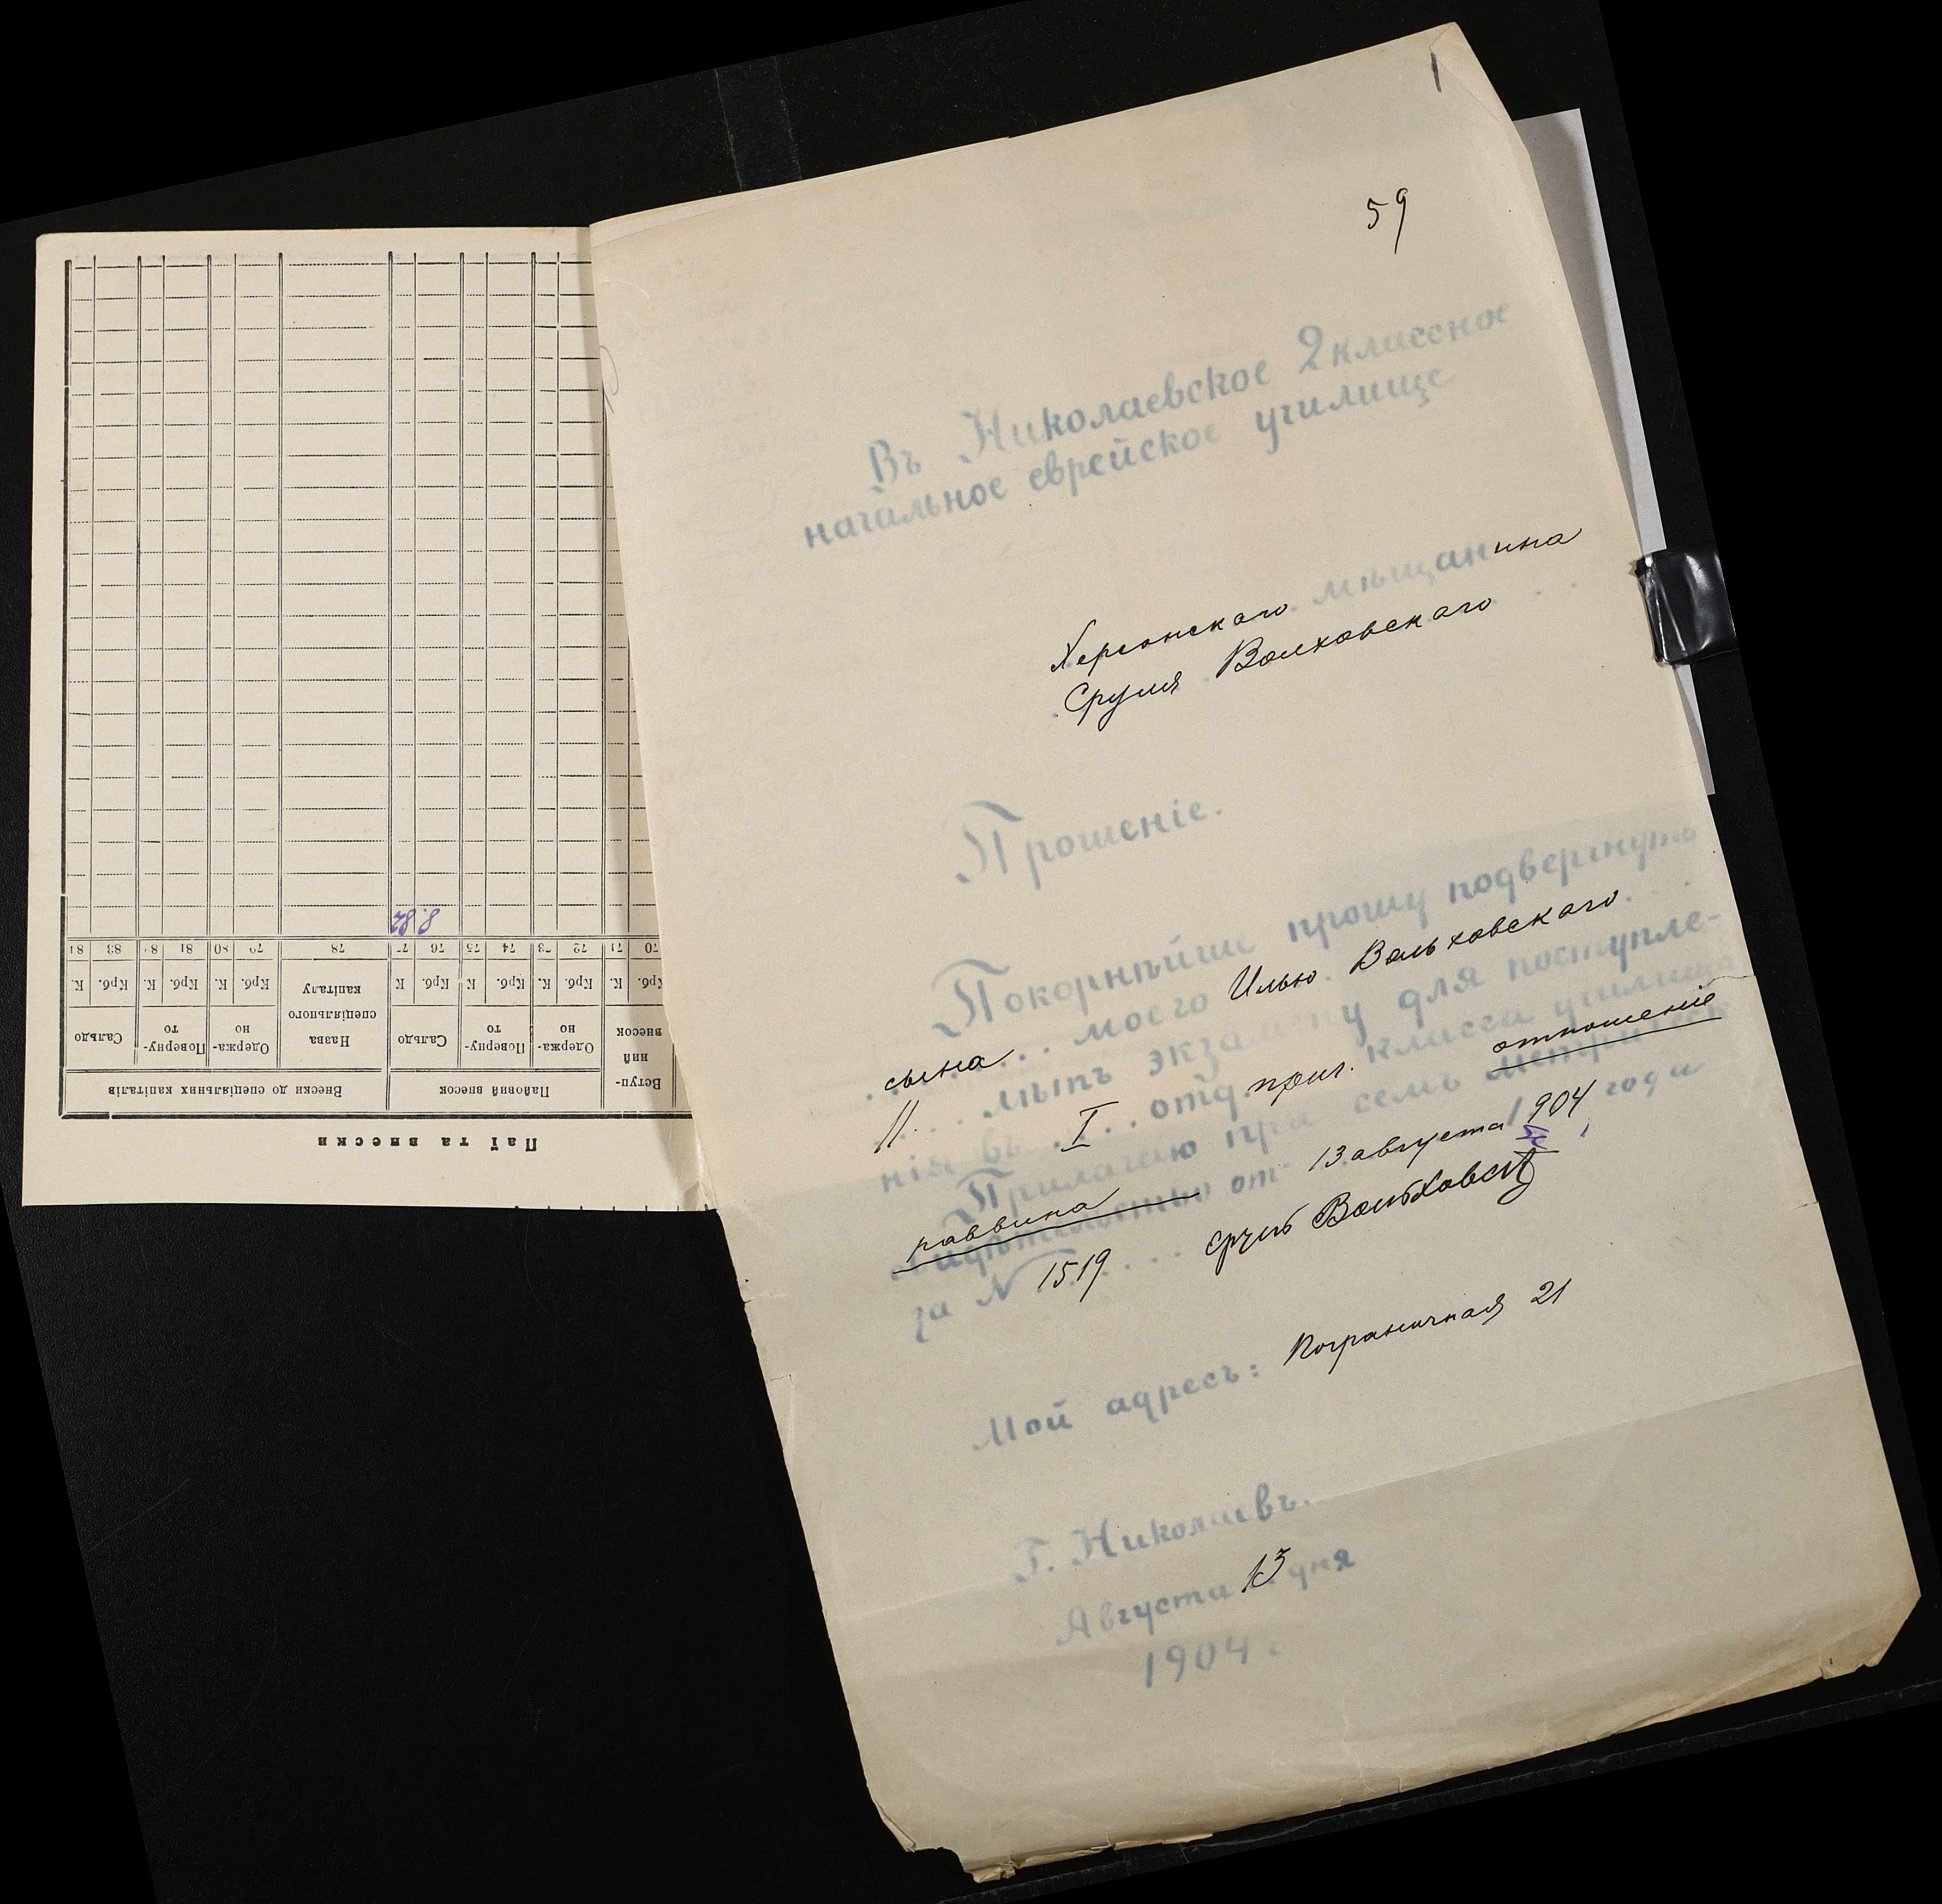 1
59
Въ Николаевское 2 классное
начальное еврейское училище
Херсонскаго мѣщанина
Сруля Волховскаго
Прошеніе.
Покорнѣйше прошу подвергнуть
сына моего Илью Вольховскаго
11 лѣтъ экзамену для поступле-
нія въ I отд. приг. класса училища
Прилагаю при семъ отношеніе
раввина от 13 августа 1904 года
за N 1519 Сруль Вольховскій
Мой адресъ: Пограничная 21
Г. Николаевъ.
Августа 13 дня
1904 г.
Паї та внески
Вступ-
ний
внесок
Пайовий внесок
Внески до спеціяльних капіталів
Одержа-
но
Поверну-
то
Сальдо
Назва
спеціяльного
капіталу
Одержа-
но
Поверну-
то
Сальдо
Крб. К. Крб. К. Крб. К Крб. К Крб. К. Крб. К. Крб. К.
70 71 72 73 74 75 76 77 78 79 80 81 82 83 84